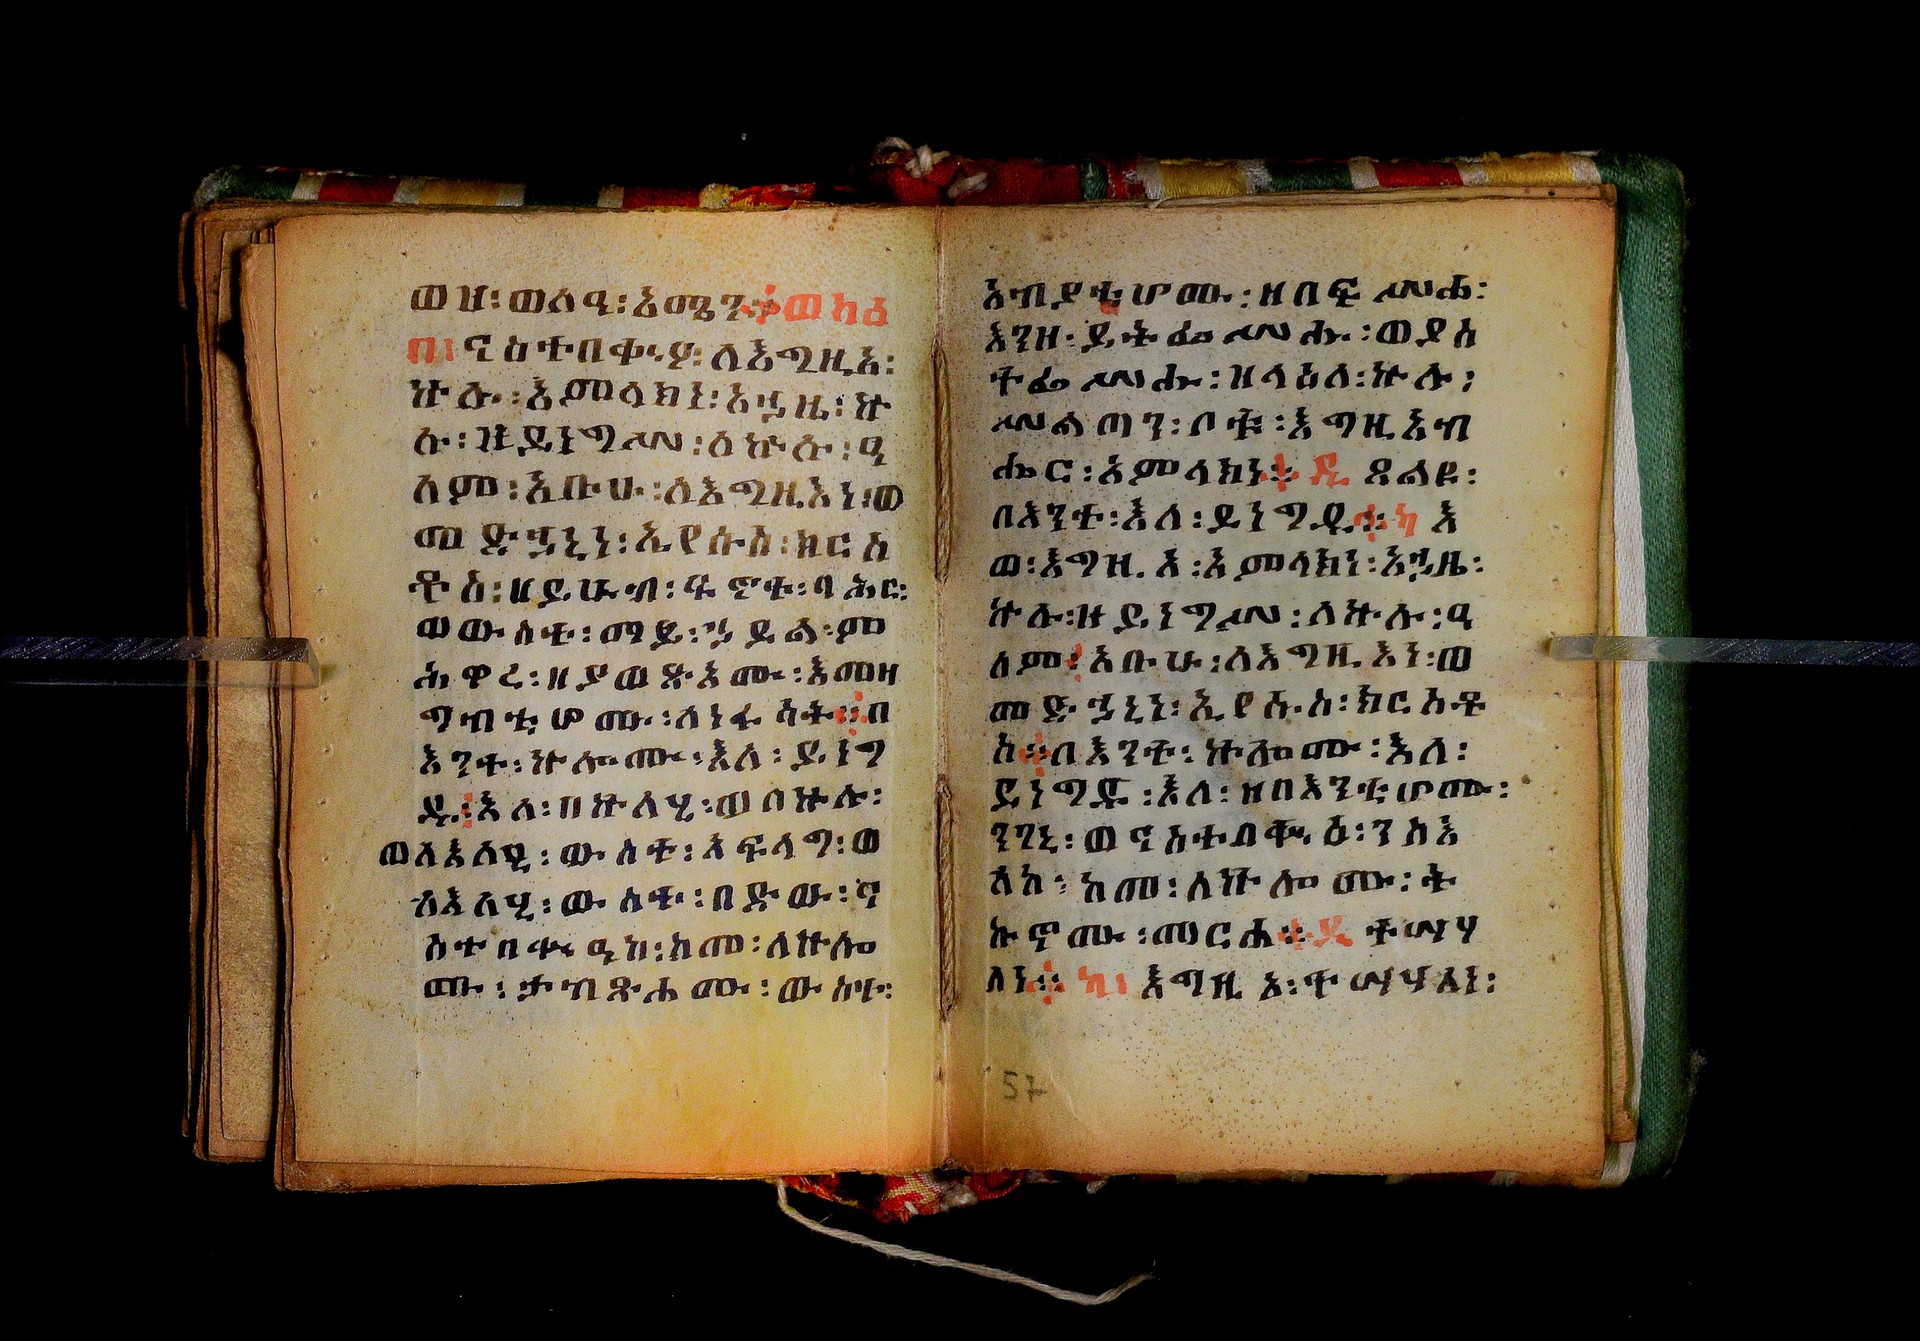 ወዝ፡ ወለዓ፡ እሜን። ወካዕ
በ፡ ናስተበቍዖ፡ ለእግዚእ፡
ኵሉ፡ አምላክነ፡ አኀዜ፡ ኵ
ሉ፡ ዝይነግሥ፡ ለኵሉ፡ ዓ
ለም፡ አቡሁ፡ ለእግዚእነ፡ ወ
መድኀኒነ፡ ኢየሱስ፡ ክርስ
ቶስ፡ ዘይሁብ፡ ፍኖተ፡ ባሕር፡
ወውስተ፡ ማይ፡ ኀይል፡ ም
ሕዋረ፡ ዘያወጽኦሙ፡ እመዘ
ግብቲሆሙ፡ ለነፋሳት፡ በ
እንተ፡ ኵሎሙ፡ እለ፡ ይነግ
ዱ፡ እለ፡ በኵለሂ፡ ወበኵሉ፡
ወለእለሂ፡ ውስተ፡ አፍላግ፡ ወ
ለእለሂ፡ ውስተ፡ በድው፡ ና
ስተበቍዓከ፡ ከመ፡ ለኵሎ
ሙ፡ ታብጽሐሙ፡ ውስተ፡
አብያቲሆሙ፡ ዘበፍሥሐ፡
እንዘ፡ ይትፌሥሑ፡ ወያስ
ተፌሥሑ፡ ዝላዕለ፡ ኵሉ፡
ሥልጣን፡ ቦቱ፡ እግዚአብ
ሔር፡ አምላክነ። ዲ ጸልዩ፡
በእንተ፡ እለ፡ ይነግዱ። ካ እ
ወ፡ እግዚእ፡ አምላክነ፡ አኀዜ፡
ኵሉ፡ ዘይነግሥ፡ ለኵሉ፡ ዓ
ለም፡ አቡሁ፡ ለእግዚእነ፡ ወ
መድኀኒነ፡ ኢየሱስ፡ ክርስቶ
ስ። በእንተ፡ ኵሎሙ፡ እለ፡
ይነግዱ፡ እለ፡ ዘበእንቲሆሙ፡
ንገኒ፡ ወናስተበቍዕ፡ ንስእ
ለከ፡ ከመ፡ ለኵሎሙ፡ ት
ኩኖሙ፡ መርሐ። ዲ ተሣሃ
ለነ። ካ፡ እግዚእ፡ ተሣሃለነ፡
57